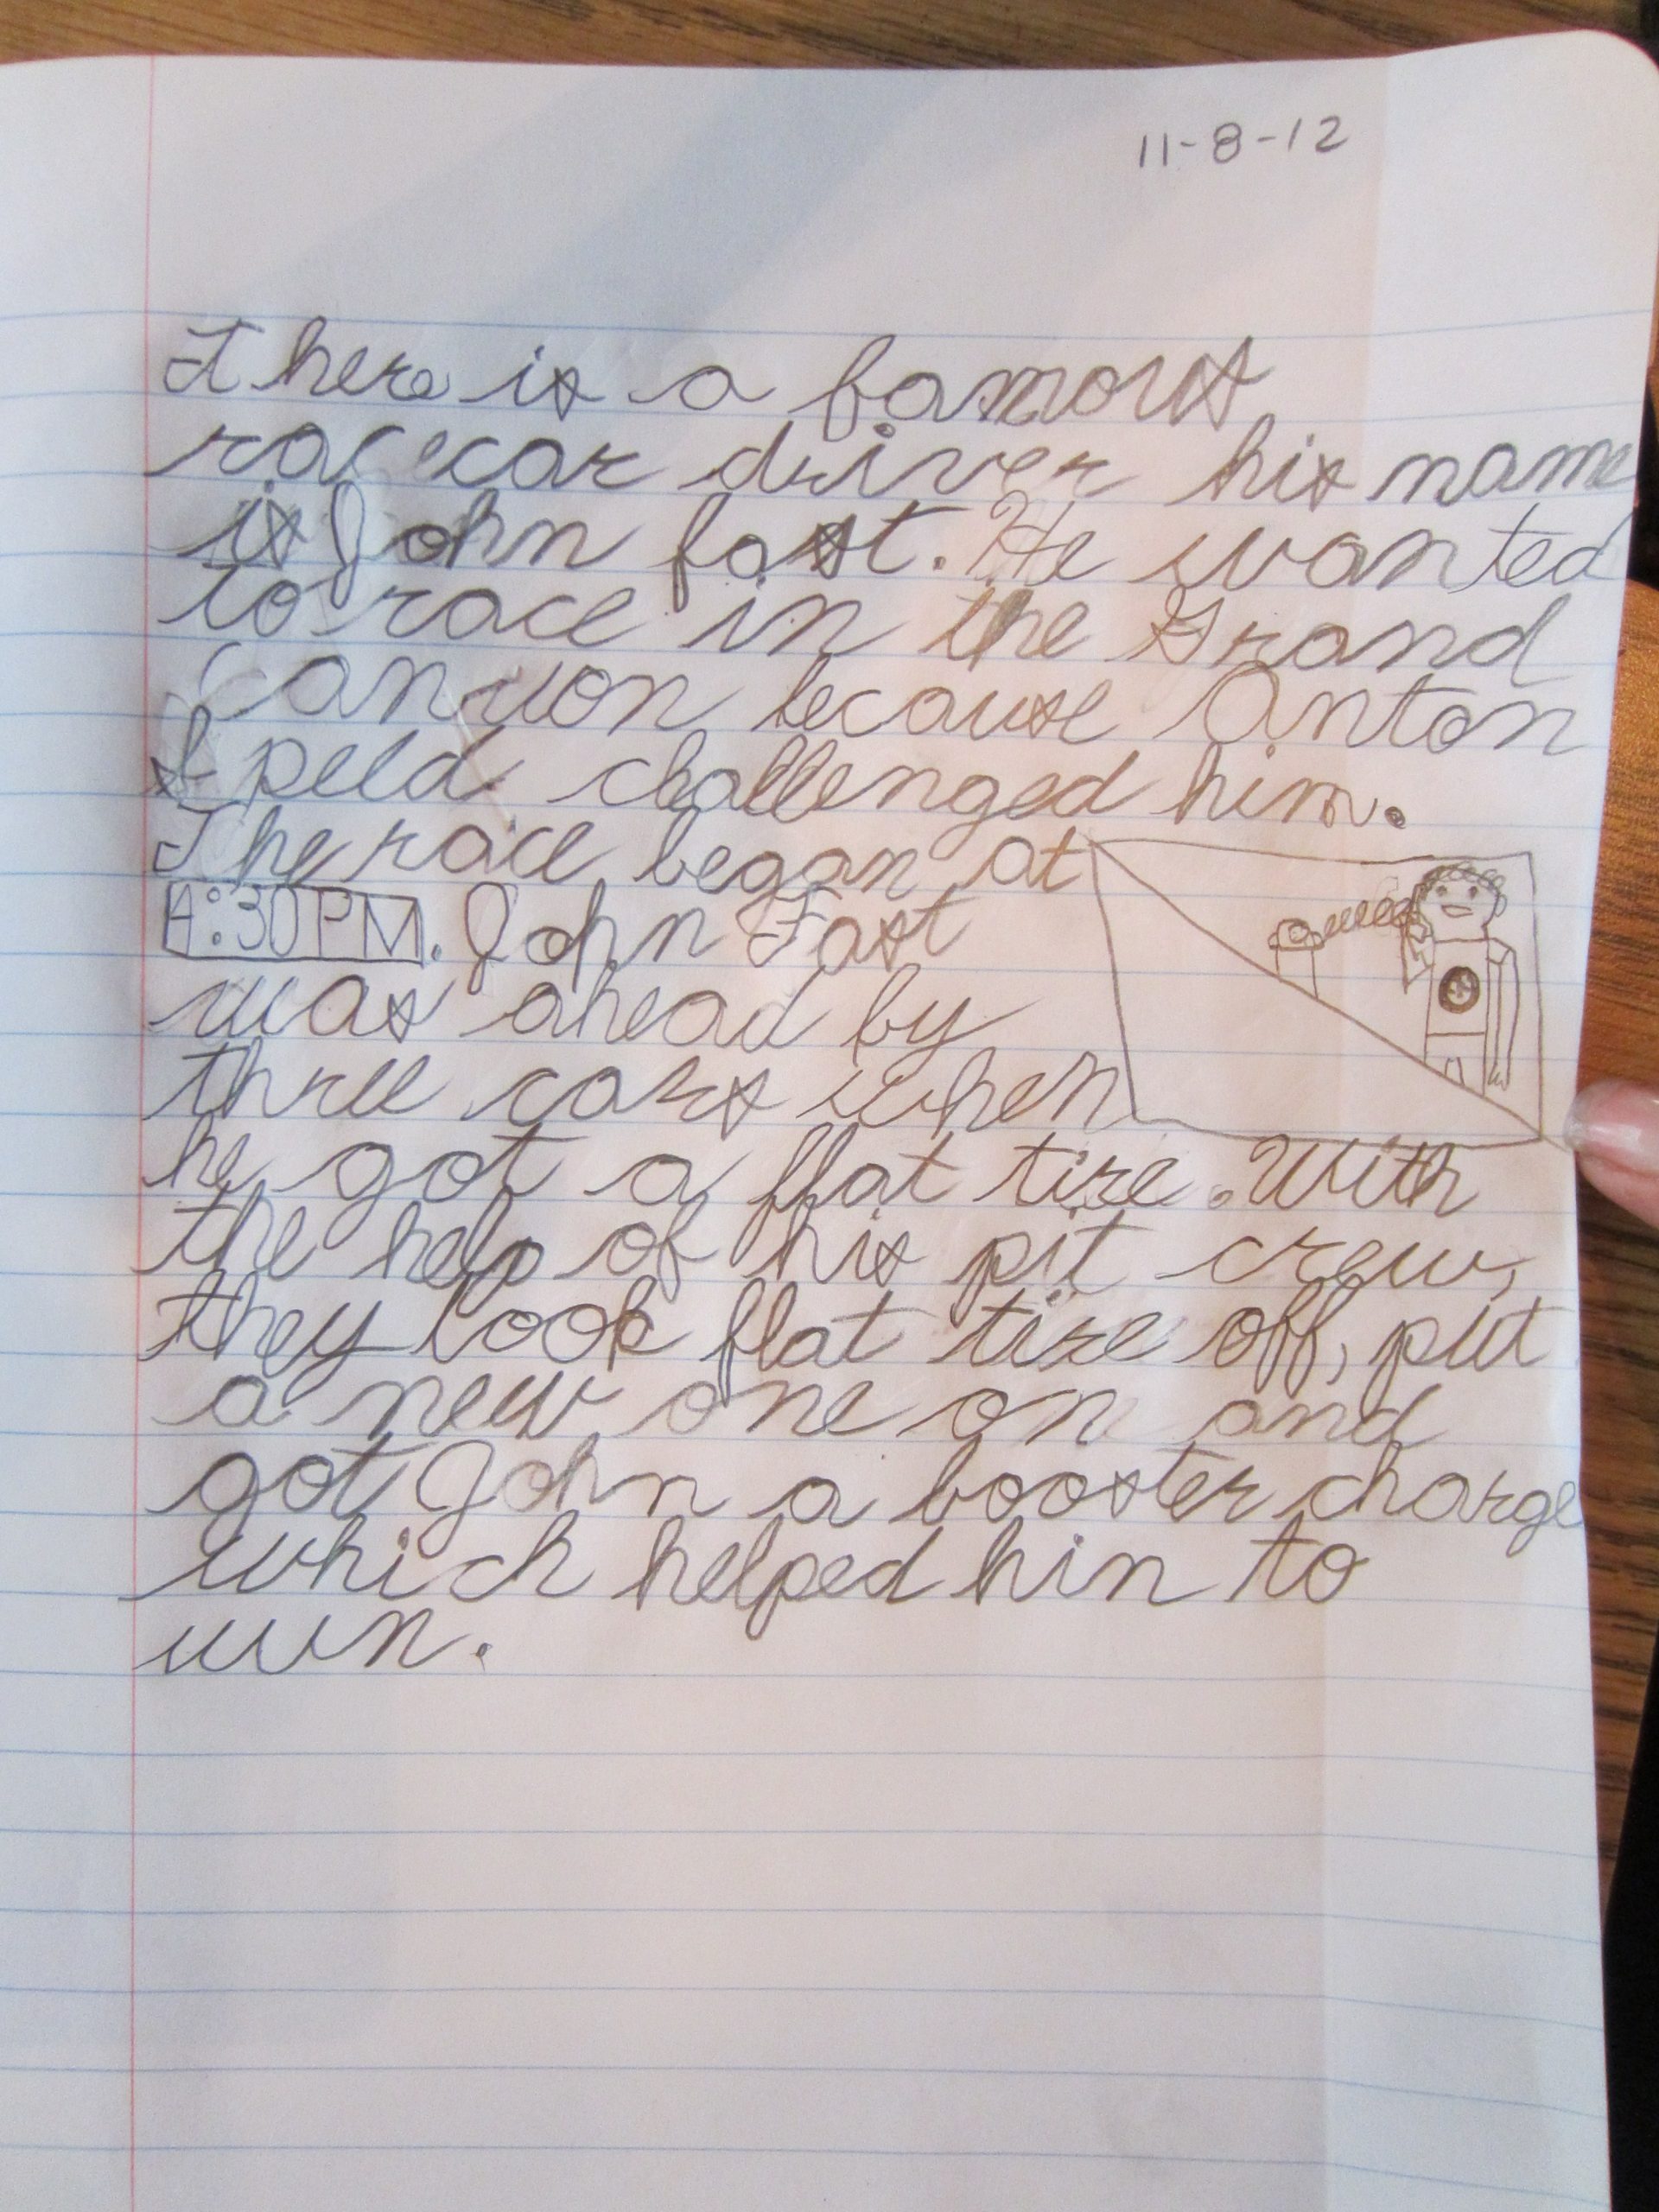 11-8-12
There is a famous
racecar driver his name
is John fast. He wanted
to race in the Grand
Canyon because Anton
Speed challenged him.
The race began at
4:30PM. John Fast
was ahead by
three cars when
he got a flat tire. With
the help of his pit crew,
they took flat tire off, put
a new one on and
got John a booster charge
which helped hin to
win.